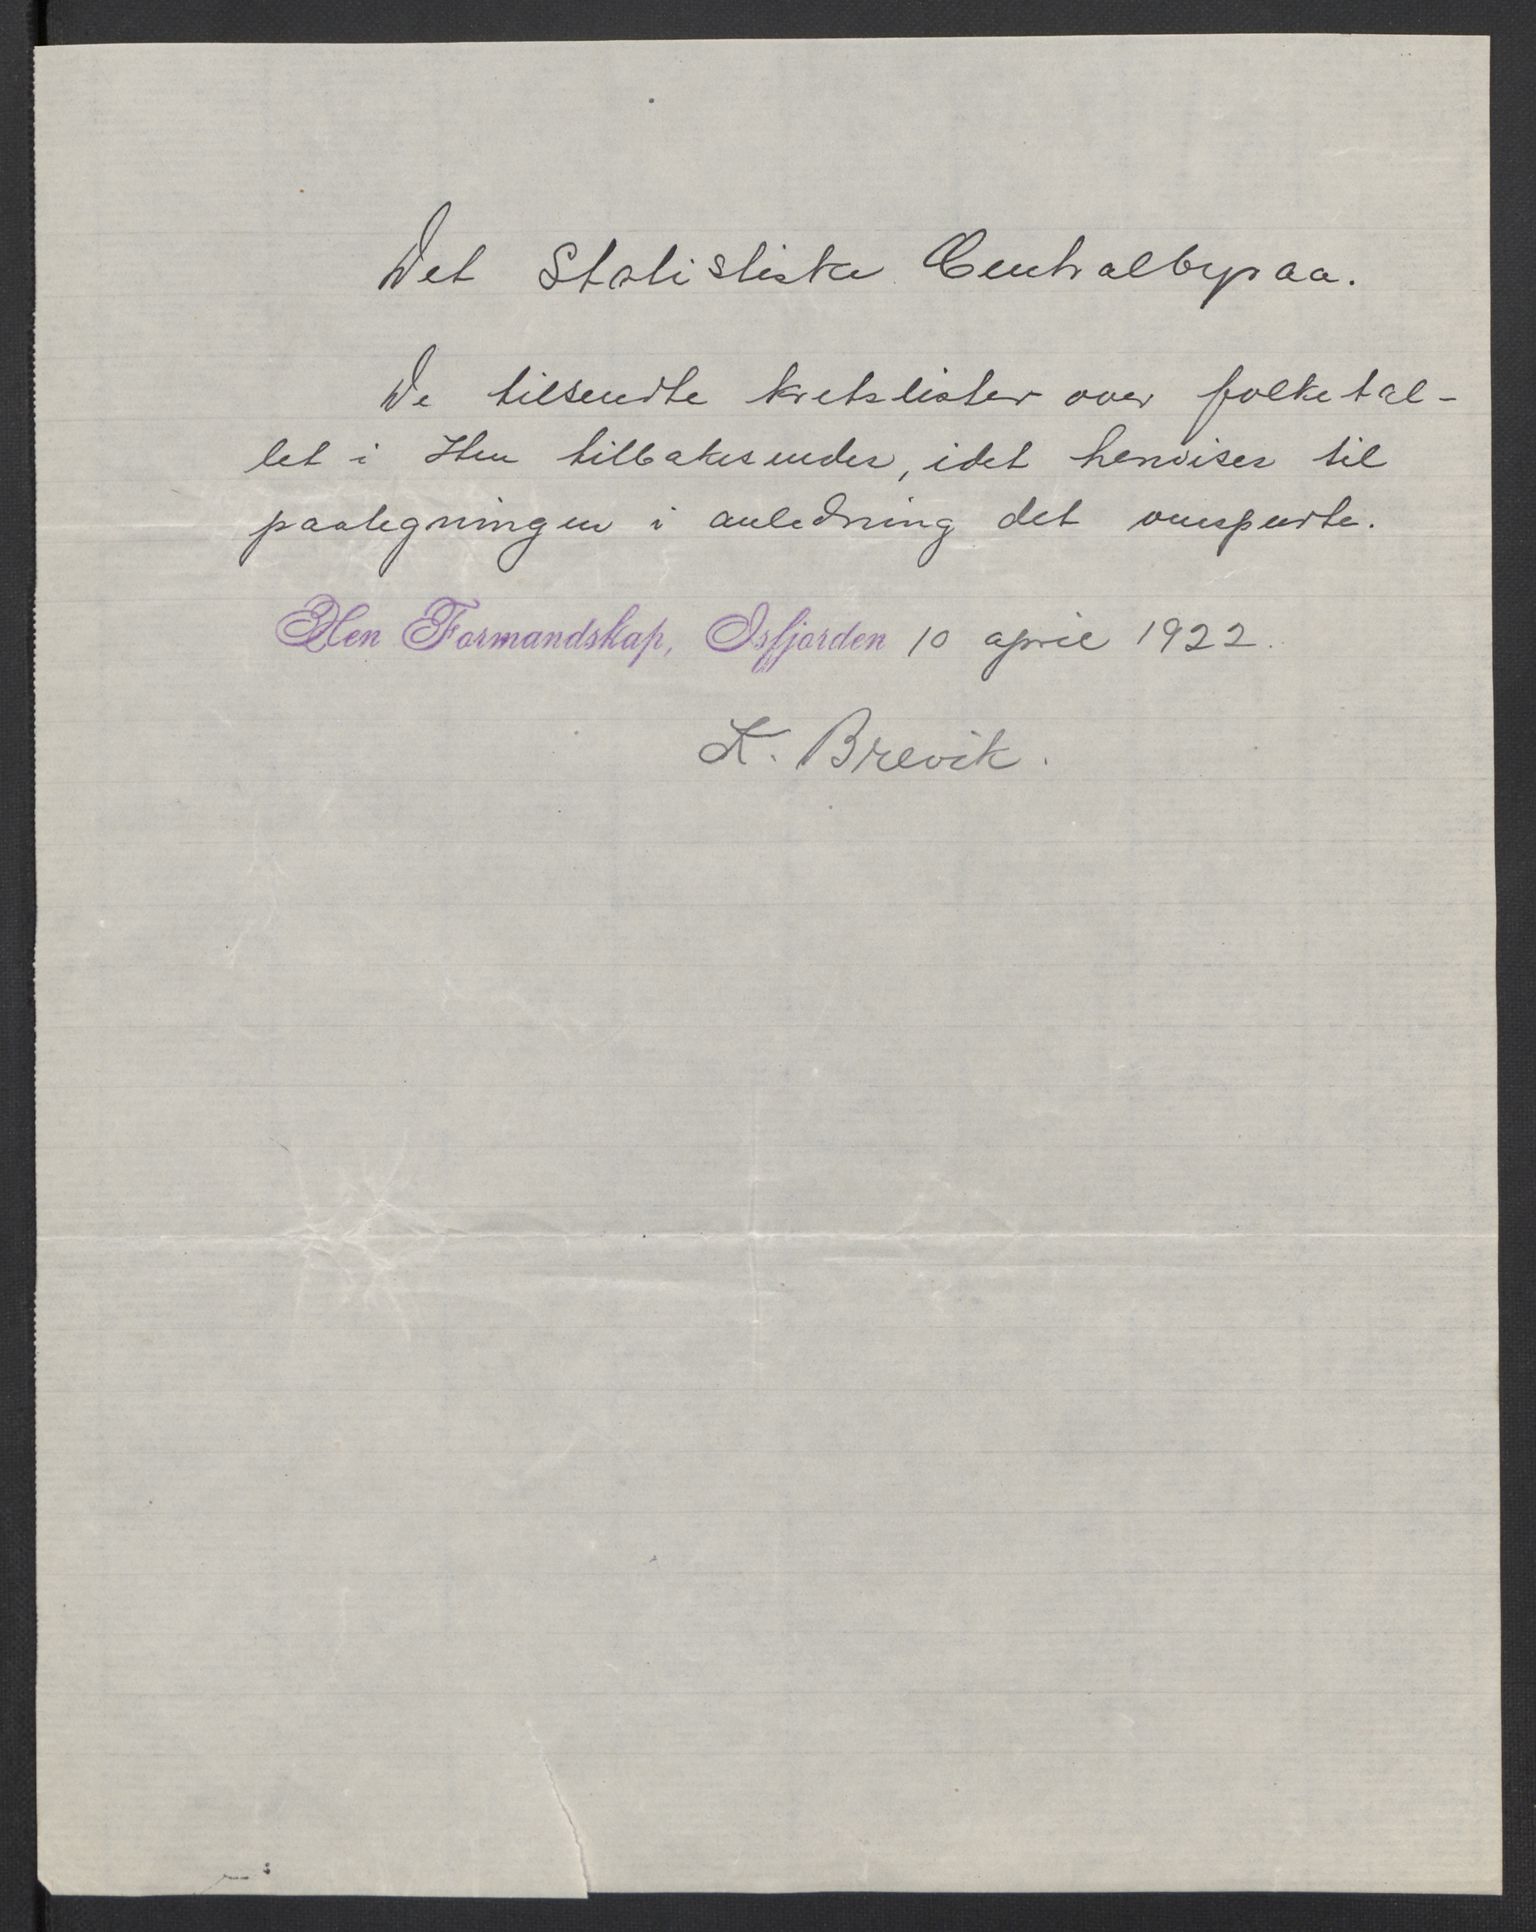 Det Statistiske Centralbyraa.
De tilsendte kretslister over folketal-
let i Hen tilbakesendes, idet henvises til
paategningen i anledning det omspurte.
Hen Formandskap, Isfjorden 10 april 1922.
K. Brevik.